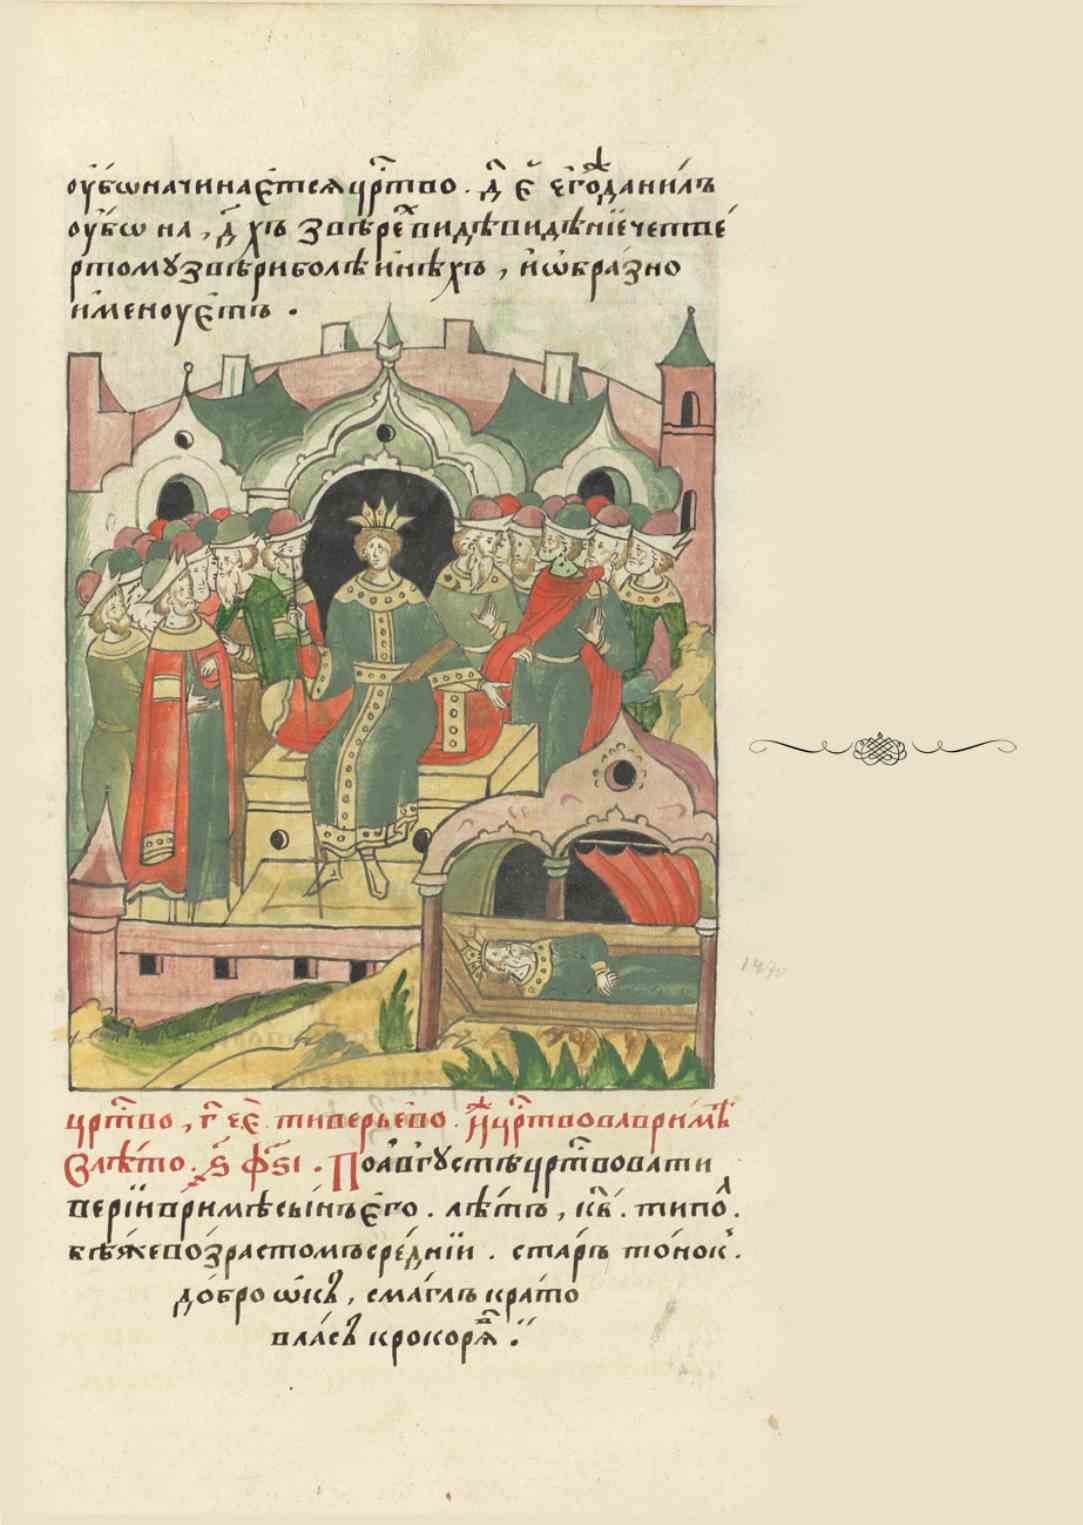 оубѡначинаєтсяцр҃тво. д҃ є егѡ҃даниилъ
оубѡ на, д҃ хъ звѣре видѣвидѣніечетве
ртомꙋзвѣриболѣ инѣхъ, иѡбразно
именоуєтъ.
цр҃тво, г҃ еє тиверьево. цр҃твовавримѣ
влѣто. ҂ѕ҃ ф҃ѕі. Поавгꙋстѣцр҃твовати
верїйвримѣсынъєго. лѣтъ, к҃в. типо.
бѣяжевозрастомъсредніи. старъ тонок.
добро ѡкъ, смаглъ крато
власъ крокоря.